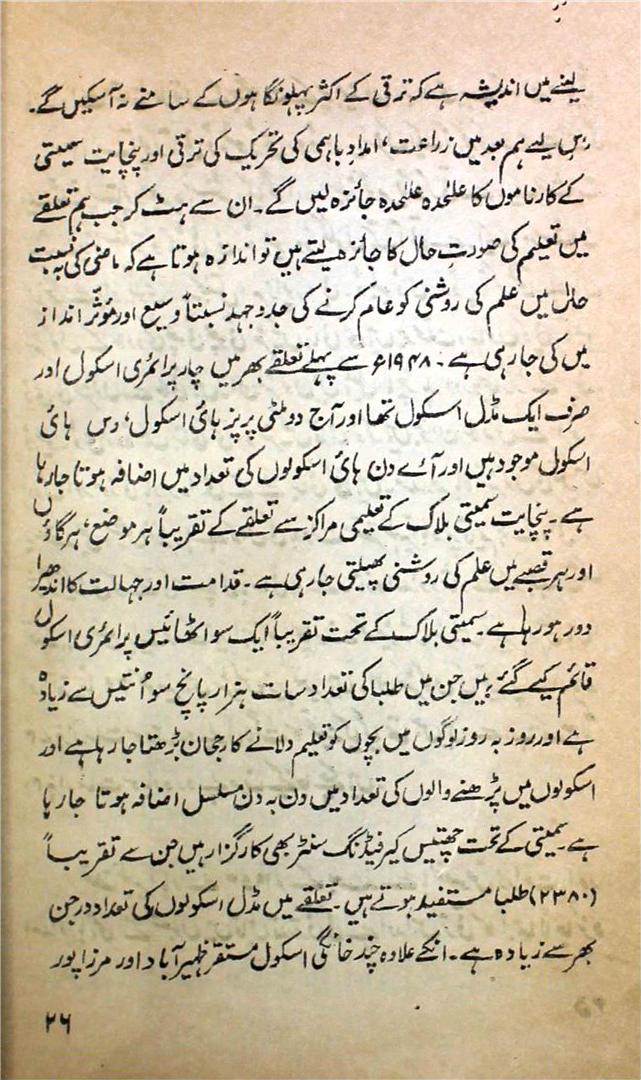 لینے میں اندیشہ ہے کہ ترقی کے اکثر پہلو نگاہوں کے سامنے نہ آسکیں گے۔
اس لیے ہم بعد میں زراعت، امدادِ باہمی کی تحریک کی ترقی اور پنچایت سمیتی
کے کارناموں کا علٰحدہ علٰحدہ جائزہ لیں گے۔ ان سے ہٹ کر جب ہم تعلقے
میں تعلیم کی صورتِ حال کا جائزہ لیتے ہیں تو اندازہ ہوتا ہے کہ ماضی کی بہ نسبت
حال میں علم کی روشنی کو عام کرنے کی جدوجہد نسبتاً وسیع اور مؤثّر انداز
میں کی جارہی ہے۔ ۱۹۴۸ء سے پہلے تعلقے بھر میں چار پرائمری اسکول اور
صرف ایک مڈل اسکول تھا اور آج دو ملٹی پرپز ہائی اسکول، دس ہائی
اسکول موجود ہیں اور آئے دن ہائی اسکولوں کی تعداد میں اضافہ ہوتا جارہا
ہے۔ پنچایت سمیتی بلاک کے تعلیمی مراکز سے تعلقے کے تقریباً ہر موضع، ہر گاؤں
اور ہر قصبے میں علم کی روشنی پھیلتی جارہی ہے۔ قدامت اور جہالت کا اندھیرا
دور ہو رہا ہے۔ سمیتی بلاک کے تحت تقریباً ایک سو اٹھائیس پرائمری اسکول
قائم کیے گئے ہیں جن میں طلبا کی تعداد سات ہزار پانچ سو اُنتیس سے زیادہ
ہے اور روز بہ روز لوگوں میں بچوں کو تعلیم دلانے کا رجحان بڑھتا جارہا ہے اور
اسکولوں میں پڑھنے والوں کی تعداد میں دن بہ دن مسلسل اضافہ ہوتا جارہا
ہے۔ سمیتی کے تحت چھتیس کیر فیڈنگ سنٹر بھی کارگزار ہیں جن سے تقریباً
(۲۳۸۰) طلبا مستفید ہوتے ہیں۔ تعلقے میں مڈل اسکولوں کی تعداد درجن
بھر سے زیادہ ہے۔ انکے علاوہ چند خانگی اسکول مستقر ظہیرآباد اور مرزاپور
۲۶